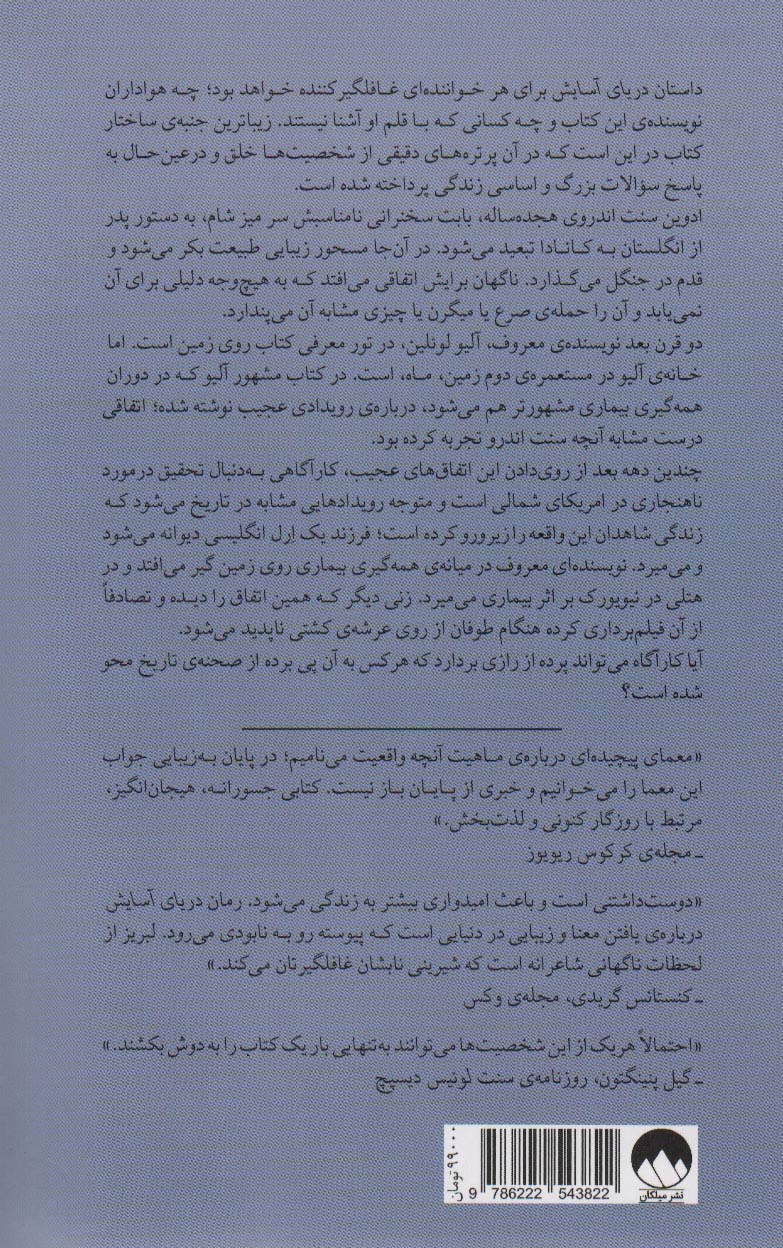 داستان دریای آسایش برای هر خواننده‌ای غافلگیرکننده خواهد بود؛ چه هواداران
نویسنده‌ی این کتاب و چه کسانی که با قلم او آشنا نیستند. زیباترین جنبه‌ی ساختار
کتاب در این است که در آن پرتره‌های دقیقی از شخصیت‌ها خلق و درعین‌حال به
پاسخ سؤالات بزرگ و اساسی زندگی پرداخته شده است.
ادوین سنت اندروی هجده‌ساله، بابت سخنرانی نامناسبش سر میز شام، به دستور پدر
از انگلستان به کانادا تبعید می‌شود. در آن‌جا مسحور زیبایی طبیعت بکر می‌شود و
قدم در جنگل می‌گذارد. ناگهان برایش اتفاقی می‌افتد که به هیچ‌وجه دلیلی برای آن
نمی‌یابد و آن را حمله‌ی صرع یا میگرن یا چیزی مشابه آن می‌پندارد.
دو قرن بعد نویسنده‌ی معروف، آلیو لوئلین، در تور معرفی کتاب روی زمین است. اما
خانه‌ی آلیو در مستعمره‌ی دوم زمین، ماه، است. در کتاب مشهور آلیو که در دوران
همه‌گیری بیماری مشهورتر هم می‌شود، درباره‌ی رویدادی عجیب نوشته شده؛ اتفاقی
درست مشابه آنچه سنت اندرو تجربه کرده بود.
چندین دهه بعد از روی‌دادن این اتفاق‌های عجیب، کارآگاهی به‌دنبال تحقیق درمورد
ناهنجاری در امریکای شمالی است و متوجه رویدادهایی مشابه در تاریخ می‌شود که
زندگی شاهدان این واقعه را زیرورو کرده است؛ فرزند یک ارل انگلیسی دیوانه می‌شود
و می‌میرد. نویسنده‌ای معروف در میانه‌ی همه‌گیری بیماری روی زمین گیر می‌افتد و در
هتلی در نیویورک بر اثر بیماری می‌میرد. زنی دیگر که همین اتفاق را دیده و تصادفاً
از آن فیلم‌برداری کرده هنگام طوفان از روی عرشه‌ی کشتی ناپدید می‌شود.
آیا کارآگاه می‌تواند پرده از رازی بردارد که هرکس به آن پی برده از صحنه‌ی تاریخ محو
شده است؟
«معمای پیچیده‌ای درباره‌ی ماهیت آنچه واقعیت می‌نامیم؛ در پایان به‌زیبایی جواب
این معما را می‌خوانیم و خبری از پایان باز نیست. کتابی جسورانه، هیجان‌انگیز،
مرتبط با روزگار کنونی و لذت‌بخش.»
ـ مجله‌ی کرکوس ریویوز
«دوست‌داشتنی است و باعث امیدواری بیشتر به زندگی می‌شود. رمان دریای آسایش
درباره‌ی یافتن معنا و زیبایی در دنیایی است که پیوسته رو به نابودی می‌رود. لبریز از
لحظات ناگهانی شاعرانه است که شیرینی نابشان غافلگیرتان می‌کند.»
ـ کنستانس گریدی، مجله‌ی وکس
«احتمالاً هریک از این شخصیت‌ها می‌توانند به‌تنهایی بار یک کتاب را به دوش بکشند.»
ـ گیل پنینگتون، روزنامه‌ی سنت لوئیس دیسپچ
۹۹۰۰۰ تومان
9 786222 543822
نشر میلکان